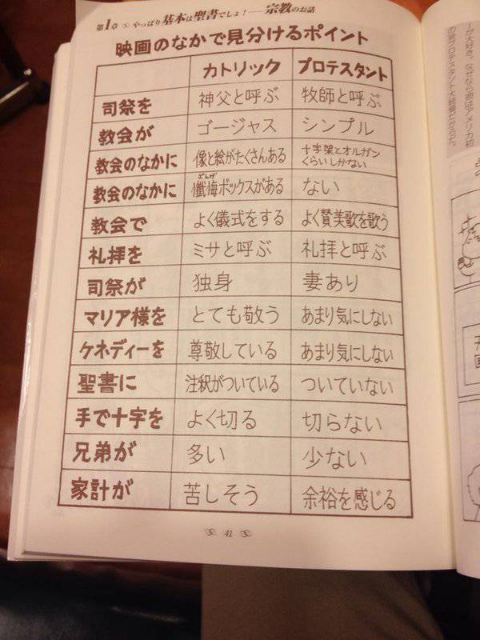 第1章 やっぱり基本は聖書でしょ！——宗教のお話
映画のなかで見分けるポイント
カトリック プロテスタント
司祭を 神父と呼ぶ 牧師と呼ぶ
教会が ゴージャス シンプル
教会のなかに 像と絵がたくさんある 十字架とオルガンくらいしかない
教会のなかに 懺悔ボックスがある ない
ざんげ
教会で よく儀式をする よく賛美歌を歌う
礼拝を ミサと呼ぶ 礼拝と呼ぶ
司祭が 独身 妻あり
マリア様を とても敬う あまり気にしない
ケネディーを 尊敬している あまり気にしない
聖書に 注釈がついている ついていない
手で十字を よく切る 切らない
兄弟が 多い 少ない
家計が 苦しそう 余裕を感じる
41